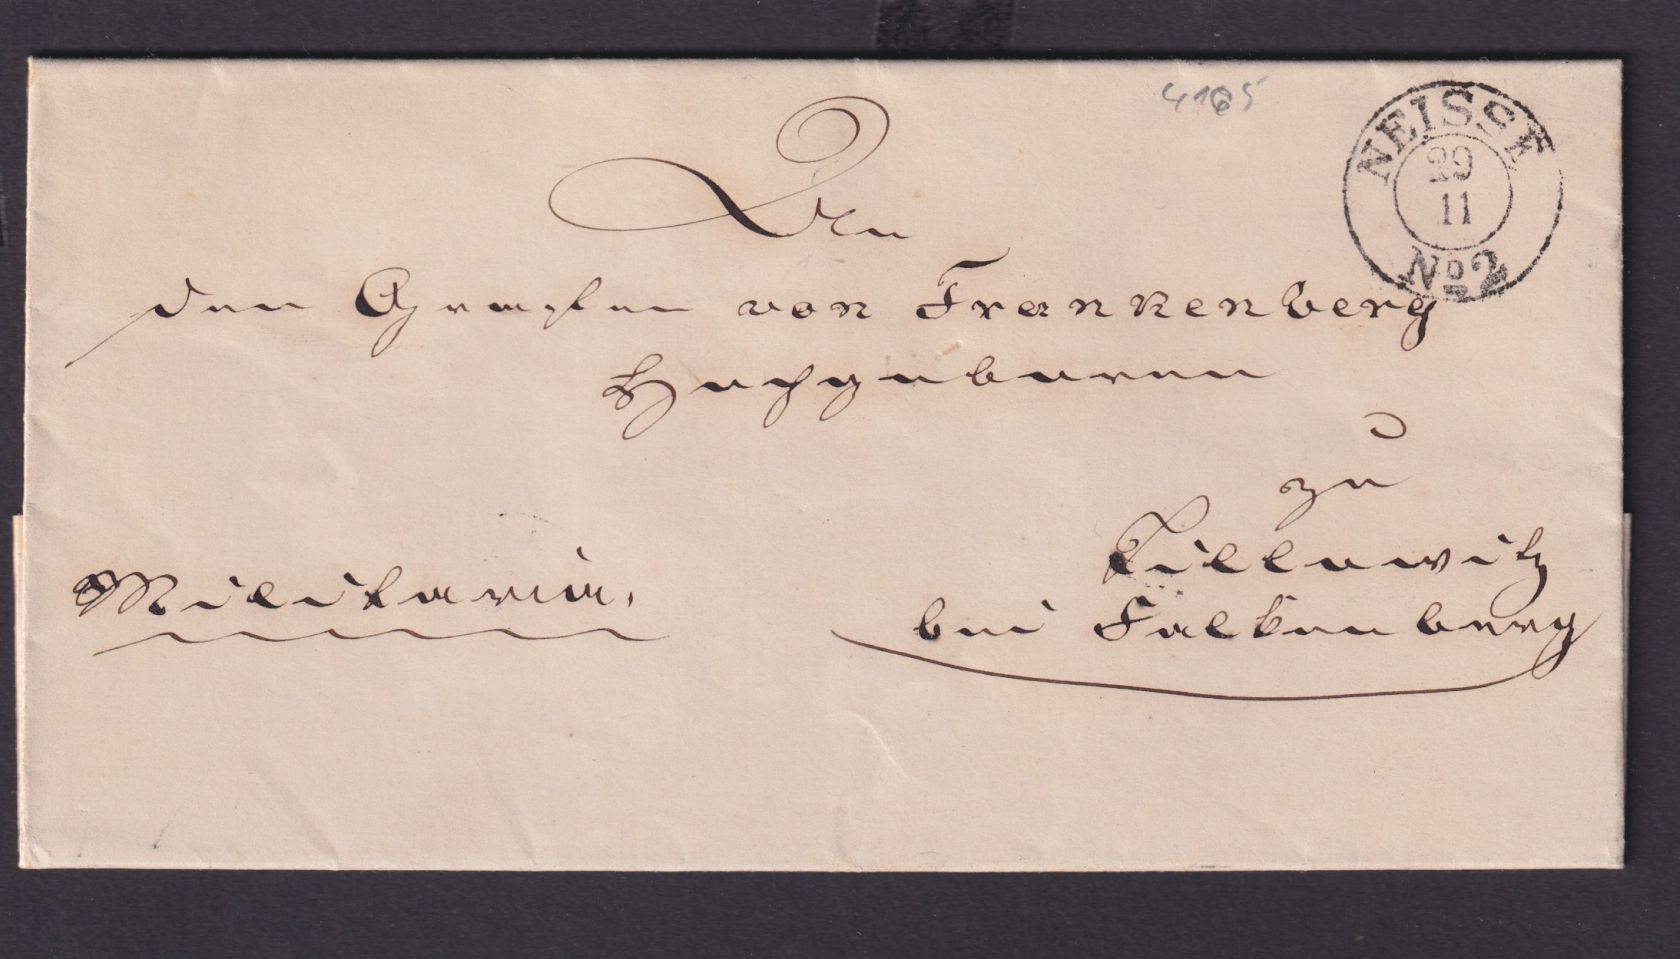 4165
NEISSE
29
11
No 2
An
den Grafen von Frankenberg
Hochgeboren
zu
Tillowitz
bei Falkenberg
Militaria.